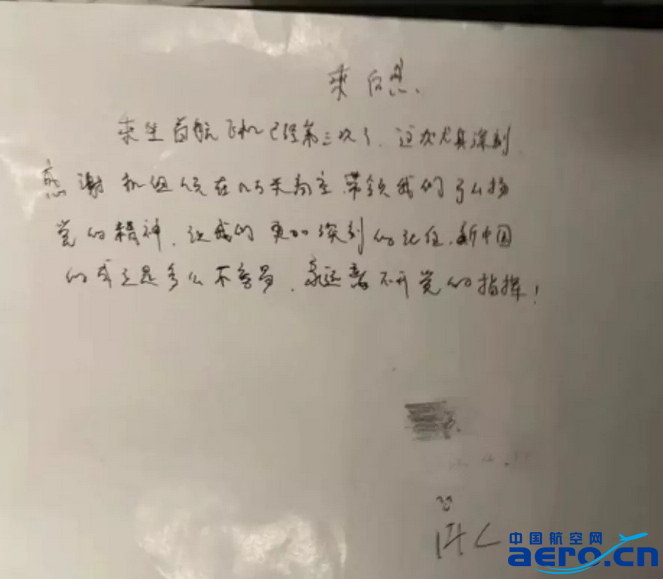 乘后感
乘坐首航飞机已经第三次了,这次尤其深刻
感谢机组人员在万米高空带领我们弘扬
党的精神,让我们更加深刻的记住,新中国
的成立是多么不容易,永远离不开党的指挥!
中国航空网
aero.cn